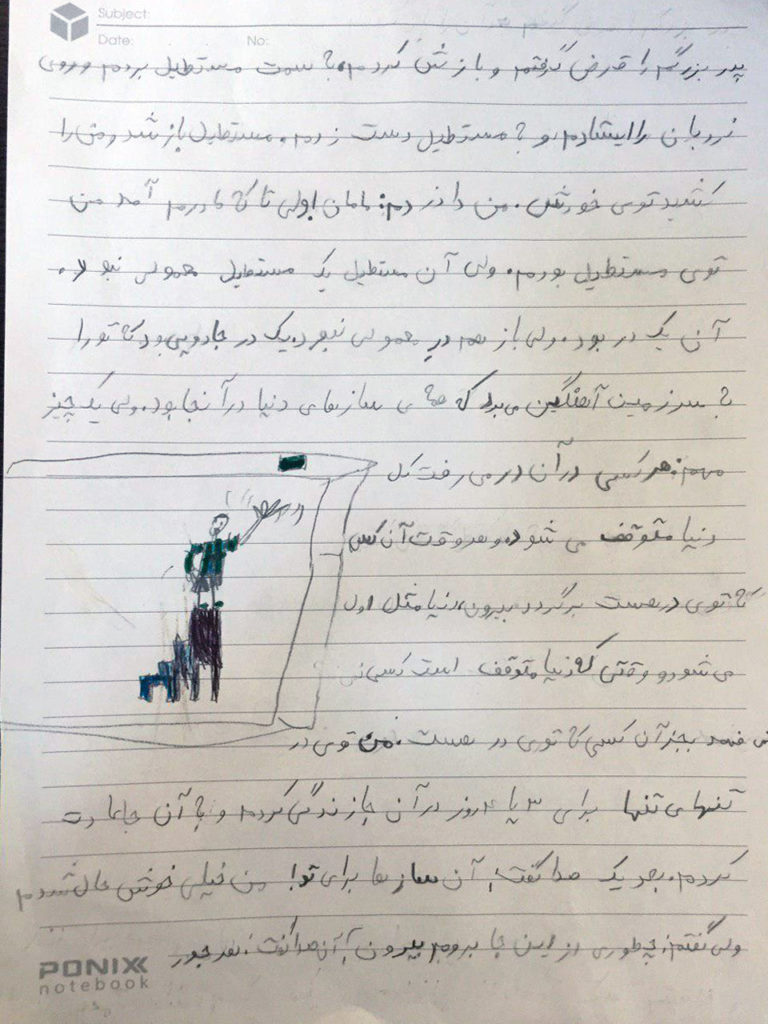 Subject:
Date: No:
پدر بزرگم را قرض گرفتم و بازش کردم، به سمت مستطیل بردم و روی
نردبان را ایستادم و به مستطیل دست زدم. مستطیل باز شد و من را
کشید توی خودش. من داد زدم: مامان! ولی تا که مادرم آمد من
توی مستطیل بودم. ولی آن مستطیل یک مستطیل معمولی نبود.
آن یک در بود. ولی باز هم در معمولی نبود. یک در جادویی بود که تو را
به سرزمین آهنگین می‌برد که همه ی سازهای دنیا در آنجا بود. ولی یک چیز
مهم: هر کسی در آن در می رفت کل
دنیا متوقف می شود و هر وقت آن کس
که توی در هست برگردد بیرون، دنیا مثل اول
می شود و وقتی که دنیا متوقف است کسی نمی
فهمد بجز آن کسی که توی در هست. من توی در
تنهای تنها برای ۳ یا ۴ روز در آن جا زندگی کردم و به آن جا عادت
کردم. بعد یک صدا گفت: آن سازها برای تو! من خیلی خوش حال شدم
ولی گفتم: چطوری از این جا بروم بیرون؟ آن صدا گفت: هر جور
PONIX
notebook